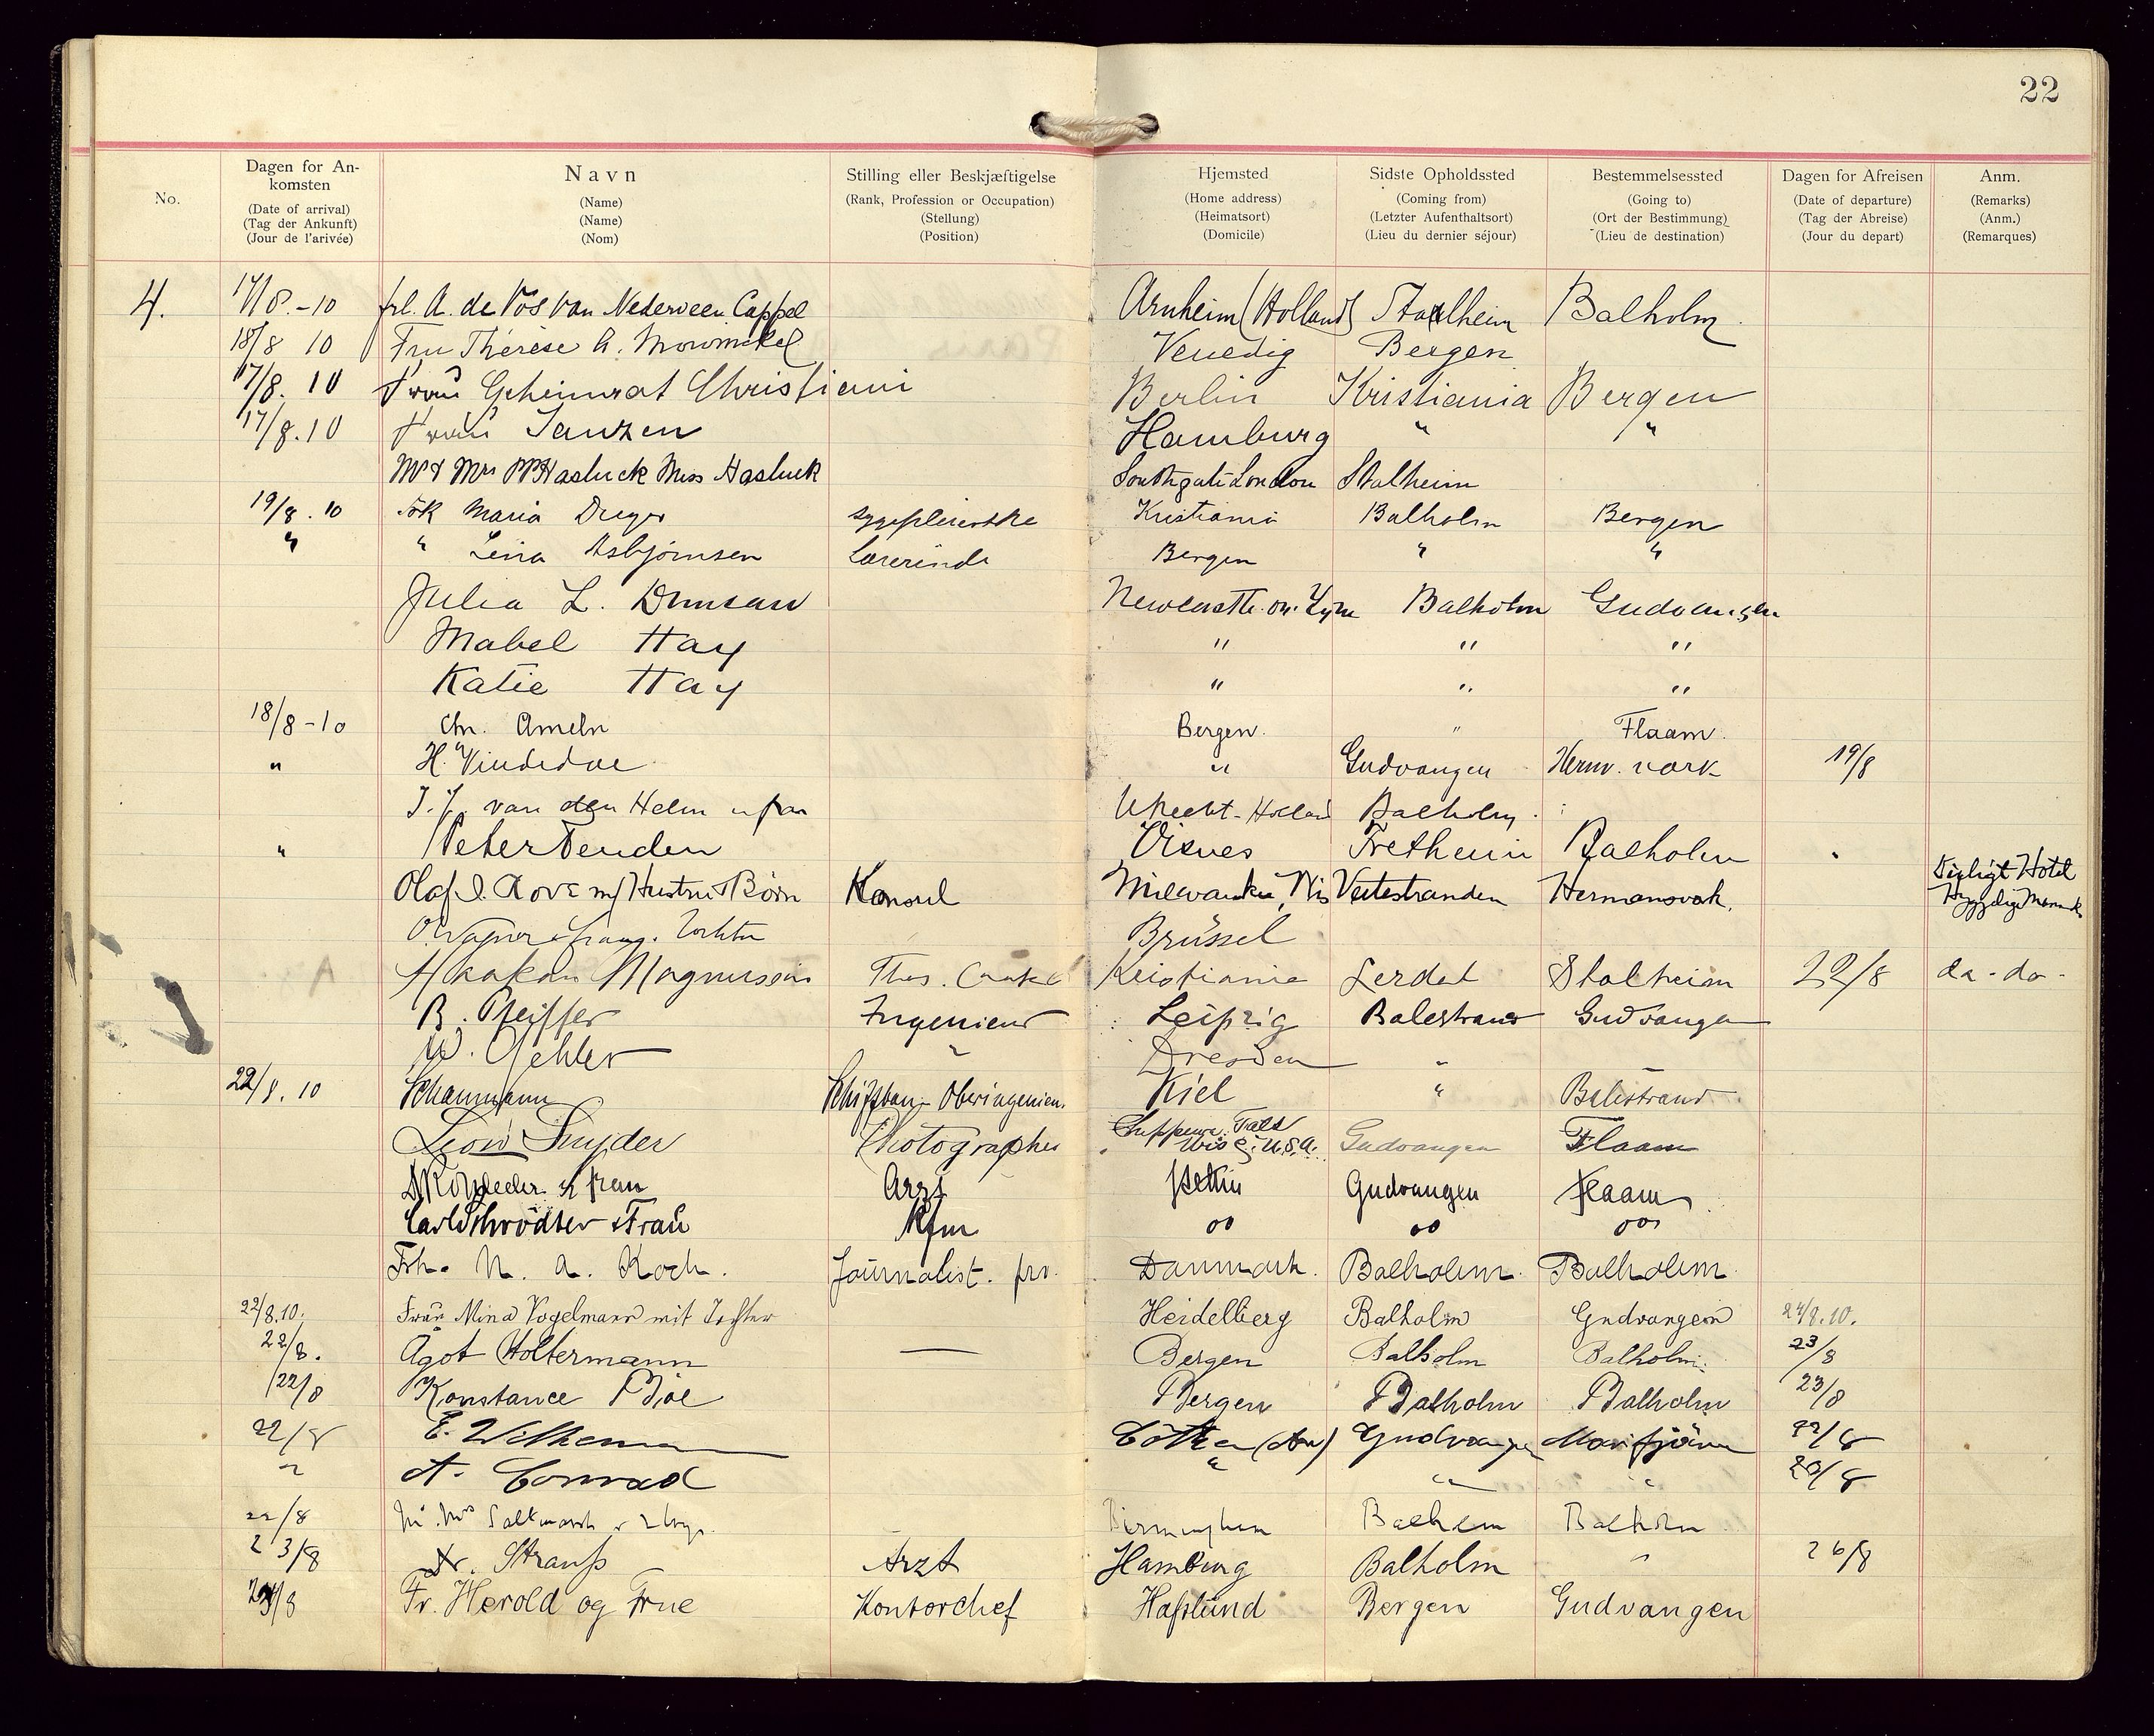 22
No.
Dagen for An-
komsten
(Date of arrival)
(Tag der Ankunft)
(Jour de l'arivée)
Navn
(Name)
(Name)
(Nom)
Stilling eller Beskjæftigelse
(Rank, Profession or Occupation)
(Stellung)
(Position)
Hjemsted
(Home address)
(Heimatsort)
(Domicile)
Sidste Opholdssted
(Coming from)
(Letzter Aufenthaltsort)
(Lieu du dernier séjour)
Bestemmelsessted
(Going to)
(Ort der Bestimmung)
(Lieu de destination)
Dagen for Afreisen
(Date of departure)
(Tag der Abreise)
(Jour du depart)
Anm.
(Remarks)
(Anm.)
(Remarques)
4. 17/8.-10 frl. A. de Vos van Nederveen Cappel Arnheim (Holland) Stalheim Balholm.
18/8 10 Fru Thérèse A. Mowinckel Venedig Bergen
17/8. 10 Frau Geheimrat Christiani Berlin Kristiania Bergen
17/8.10 Frau Janzen Hamburg " "
Mr & Mrs Hasluck Miss Hasluck Southgate London Stalheim
19/8.10 Frk Maria Dreyer sygepleierske Kristiania Balholm Bergen
" " Lina Asbjørnsen Lærerinde Bergen " "
Julia L. Duncan Newcastle-on-Tyne Balholm Gudvangen
Mabel Hay " " "
Katie Hay " " "
18/8-10 Chr. Ameln Bergen. " Flaam.
" H. " Gudvangen 19/8
van den Helm Utrecht-Holland Balholm.
" Peter Tenden Visnes Fretheim Balholm
Olaf I. Rove m/ Hustru & Børn Konsul Milwaukee, Wis Vetlestranden Hermansverk. Deiligt Hotel
Hyggelige
Tochter Brüssel
Haakon Magnussen Thos. Cook Kristiania Lerdal Stalheim 22/8 do-do-
R. Pfeiffer Ingenieur Leipzig Balestrand Gudvangen
W. Gehler " Dresden "
22/8.10 Schaumann Schiffbau-Oberingenieur. Kiel " Balestrand
Leon Snyder Photographer Chippewa Falls
Wis. U.S.A. Gudvangen Flaam
frau Arzt Stettin Gudvangen Flaam
Carl Schrödter & Frau Kfm " " "
Frk. N. A. Koch. Journalist. Danmark. Balholm. Balholm.
22/8.10. Frau Mina Vogelmann mit Tochter Heidelberg Balholm Gudvangen 24/8.10.
22/8. Agot Holtermann — Bergen Balholm Balholm. 23/8
22/8 Konstance Bøe Bergen Balholm Balholm 23/8
22/8 E. Cöthen (Anh) Gudvangen Marifjären 22/8
" A. Conrad " " "
22/8 Mr. Mrs Saltmarsh Birmingham Balholm Balholm
23/8 Dr. Strauß Arzt Hamburg Balholm " 26/8
Fr. Herold og Frue Kontorchef Hafslund Bergen Gudvangen